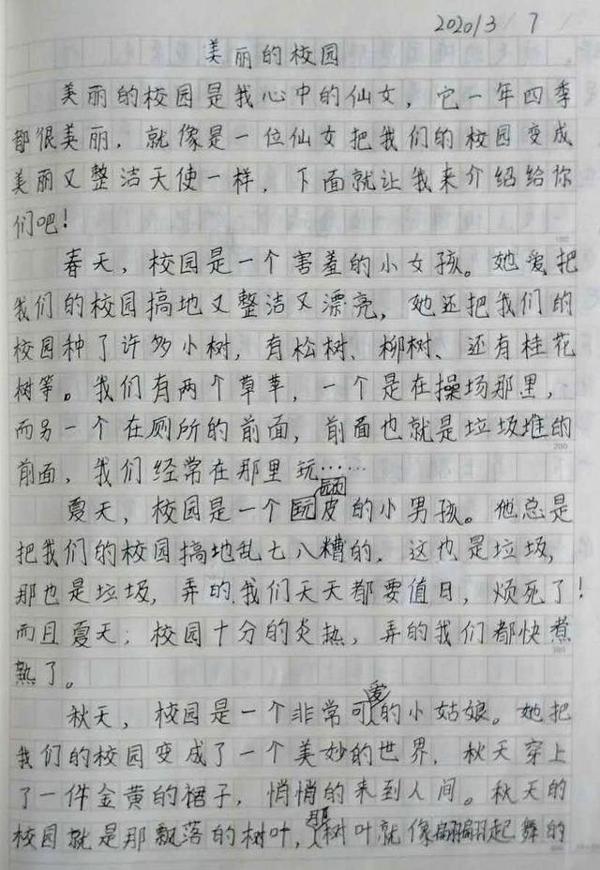 2020/3/7
美丽的校园
美丽的校园是我心中的仙女，它一年四季
都很美丽，就像是一位仙女把我们的校园变成
美丽又整洁天使一样，下面就让我来介绍给你
们吧！
春天，校园是一个害羞的小女孩。她爱把
我们的校园搞地又整洁又漂亮，她还把我们的
校园种了许多小树，有松树、柳树、还有桂花
树等。我们有两个草苹，一个是在操场那里，
而另一个在厕所的前面，前面也就是垃圾堆的
前面，我们经常在那里玩……
夏天，校园是一个皮的小男孩。他总是
把我们的校园搞地乱七八糟的，这也是垃圾，
那也是垃圾，弄的我们天天都要值日，烦死了！
而且夏天；校园十分的炎热，弄的我们都快煮
熟了。
秋天，校园是一个非常可爱的小姑娘。她把
我们的校园变成了一个美妙的世界，秋天穿上
了一件金黄的裙子，悄悄的来到人间。秋天的
校园就是那飘落的树叶，那树叶就像翩翩起舞的